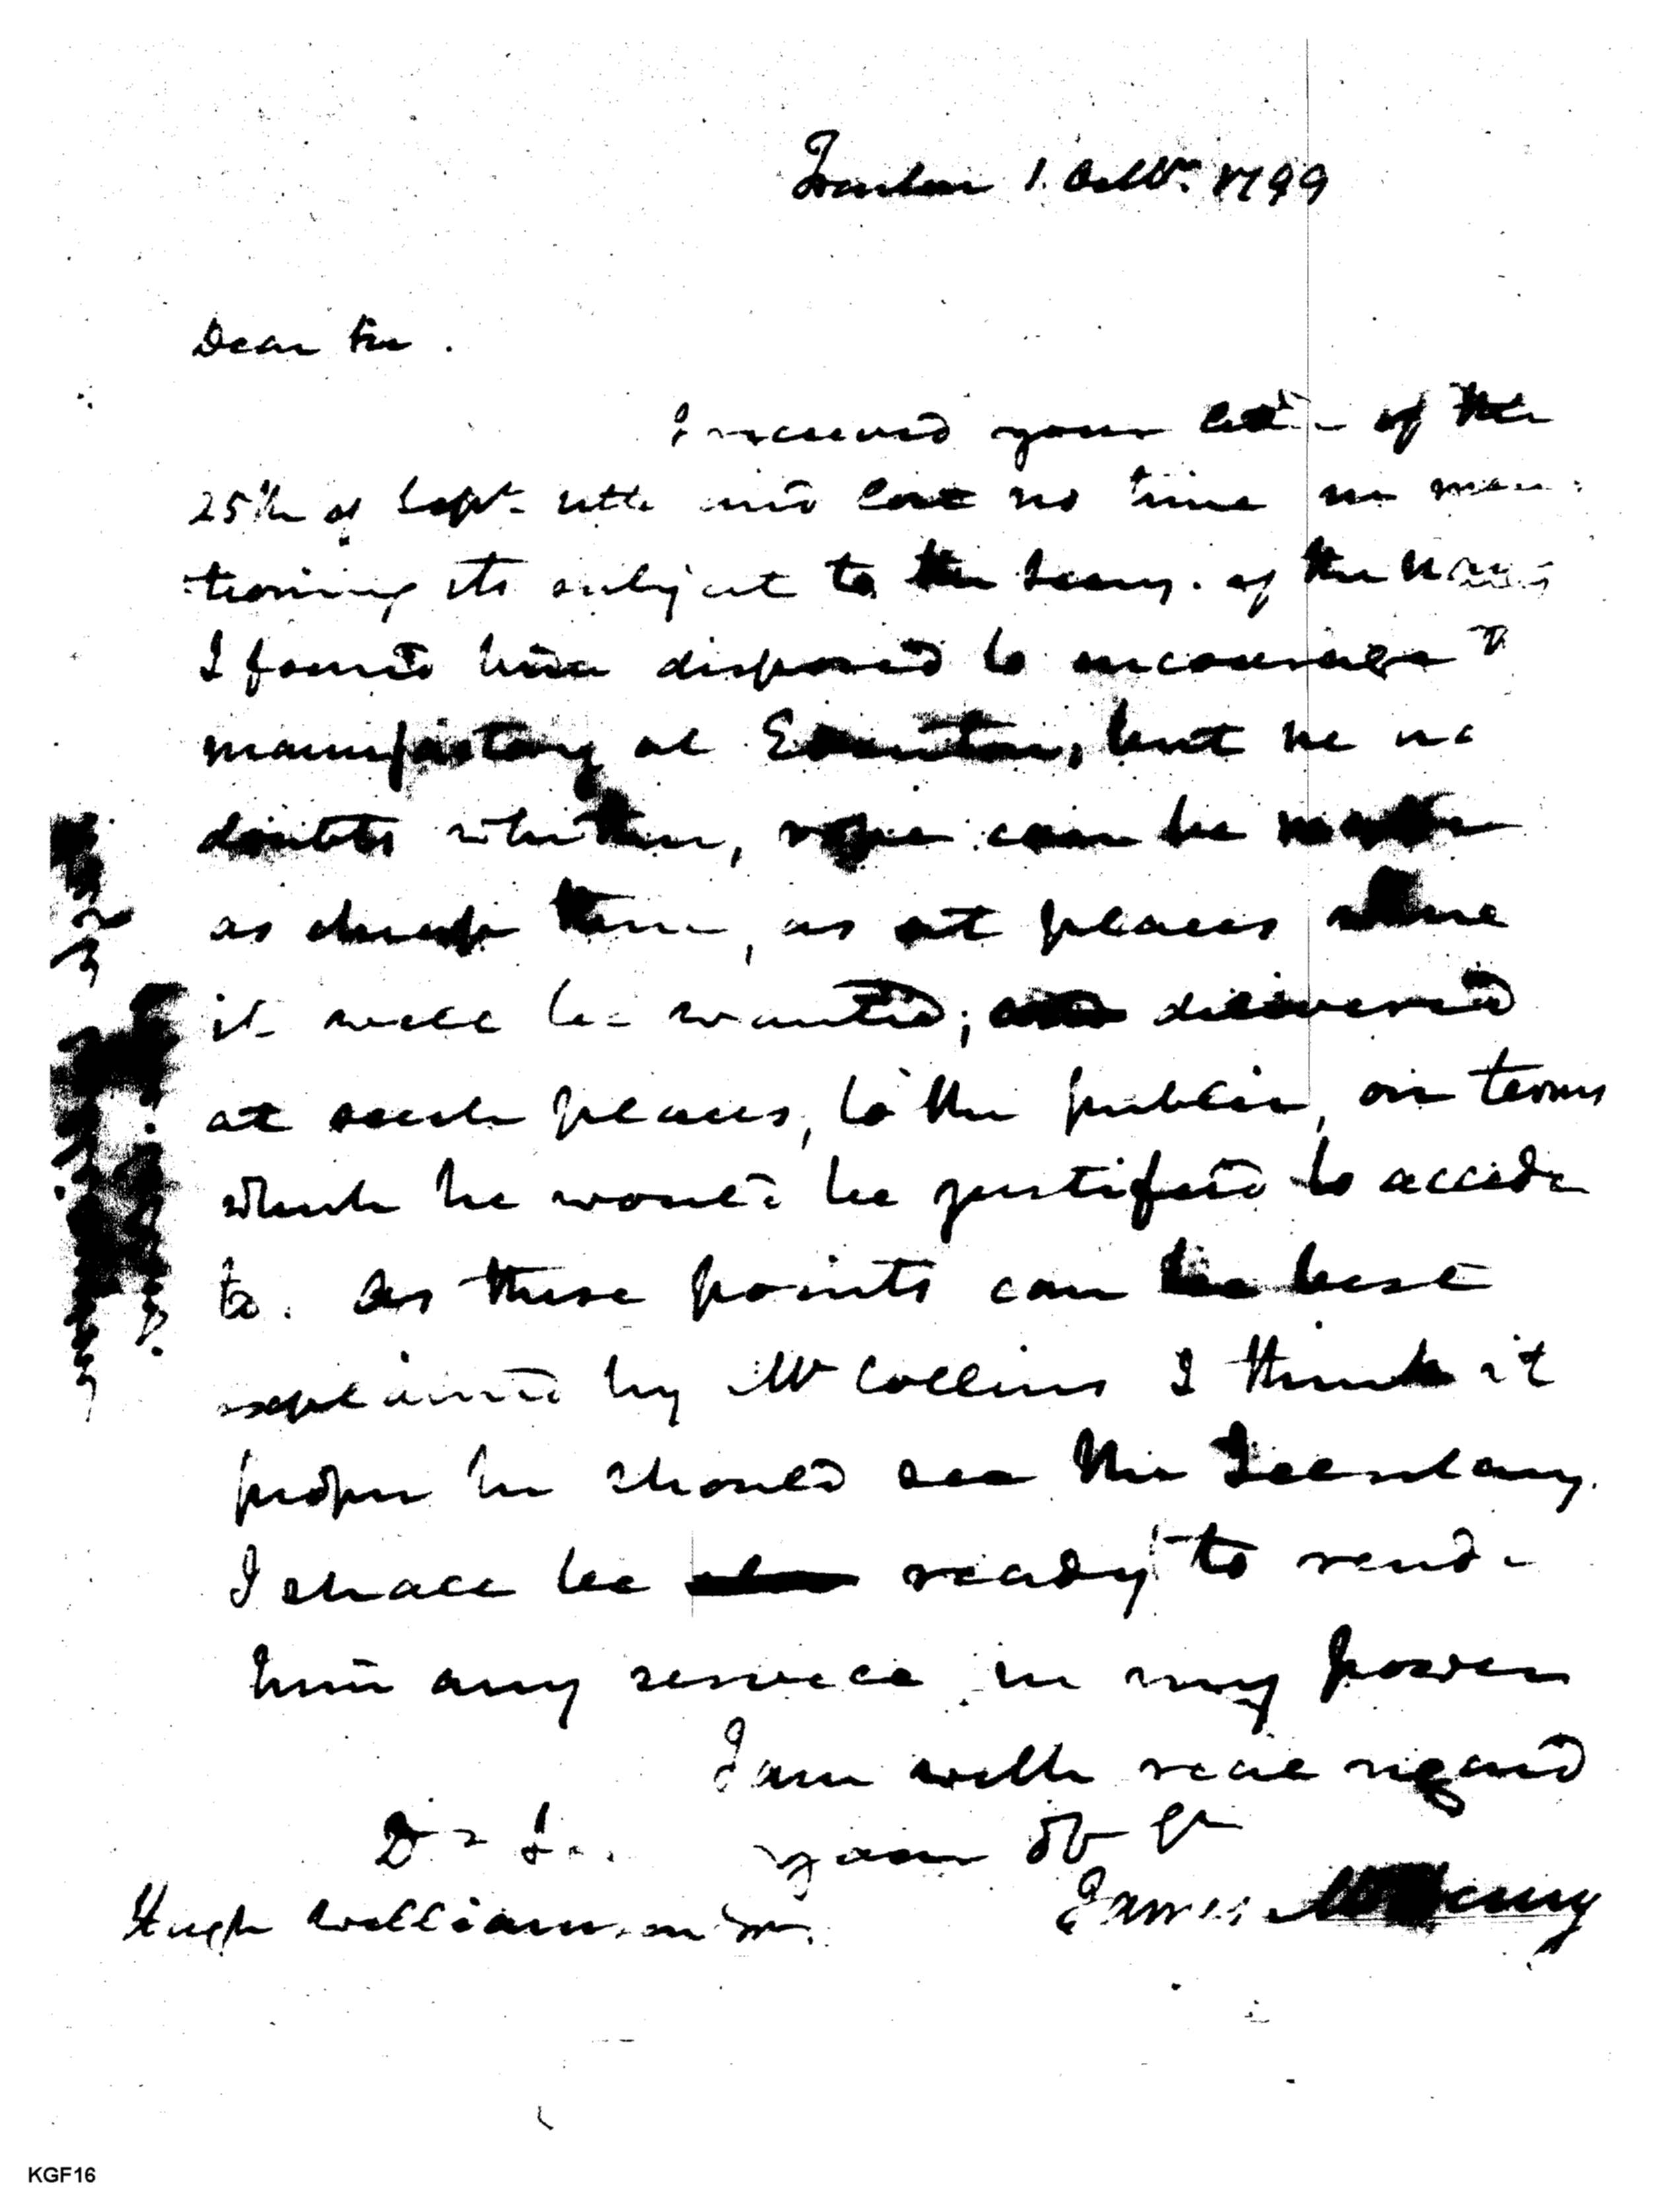 Trenton 1. Octbr. 1799
Dear Sir.
I received your letter of the
25th of Sept. ulto and lost no time in men-
tioning its subject to the Secry. of the Navy
I found him disposed to encourage
manufactory at Edenton, but he
doubts whether, rope can be made
as cheap there, as at places where
it will be wanted; and delivered
at such places, to the public, on terms
which he would be justified to accede
to. As these points can be best
explained by Mr Collins I think it
proper he should see the Secretary.
I shall be ready to render
him any service in my power
I am with real regard
Dr Sr. your Ob St
Hugh Williamson James McHenry
KGF16